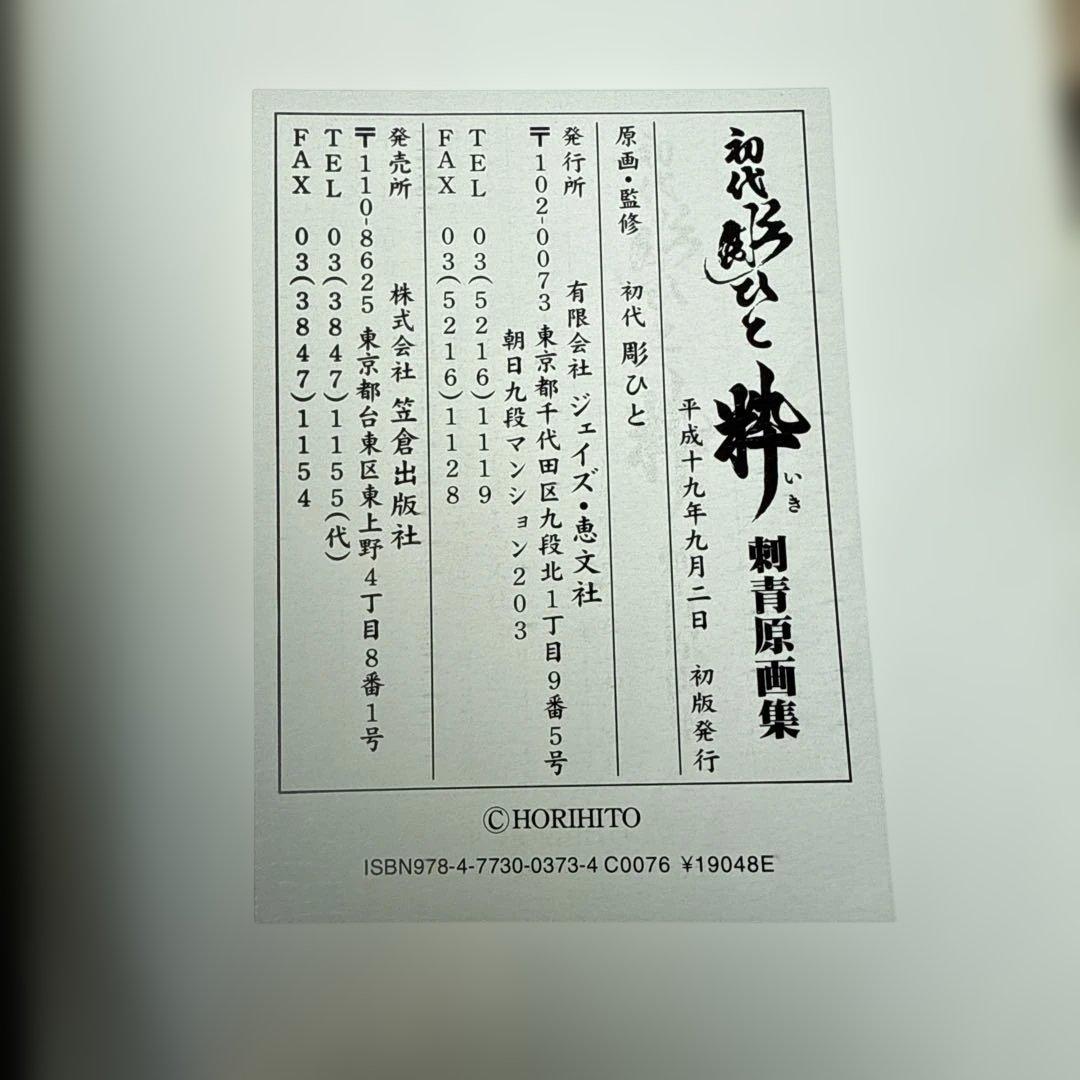 初代彫ひと 粋 刺青原画集
いき
平成十九年九月二日 初版発行
原画・監修 初代 彫ひと
発行所 有限会社 ジェイズ・恵文社
〒102-0073 東京都千代田区九段北1丁目9番5号
朝日九段マンション203
TEL 03(5216)1119
FAX 03(5216)1128
発売所 株式会社 笠倉出版社
〒110-8625 東京都台東区東上野4丁目8番1号
TEL 03(3847)1155(代)
FAX 03(3847)1154
©HORIHITO
ISBN978-4-7730-0373-4 C0076 ¥19048E